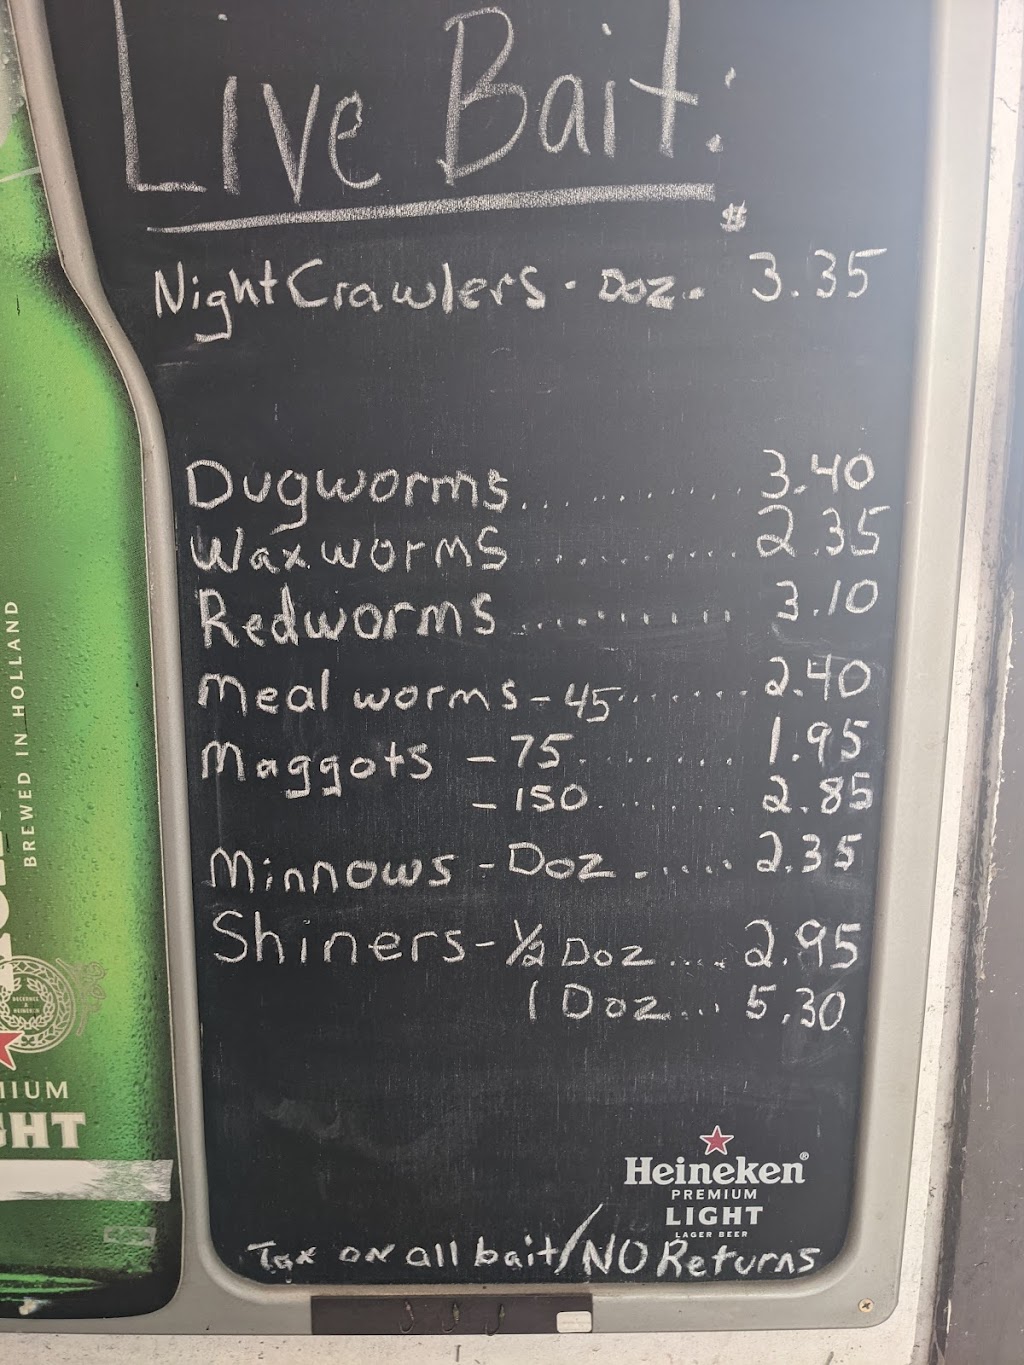 Live Bait:
$
NightCrawlers - Doz. 3.35
Dugworms.............. 3.40
Waxworms ............ 2.35
Redworms ............ 3.10
Meal worms - 45......... 2.40
Maggots - 75......... 1.95
- 150......... 2.85
Minnows - Doz ..... 2.35
Shiners - 1/2 Doz .... 2.95
1 Doz... 5.30
BREWED IN HOLLAND
MIUM
GHT
Heineken®
PREMIUM
LIGHT
LAGER BEER
Tax on all bait/NO Returns